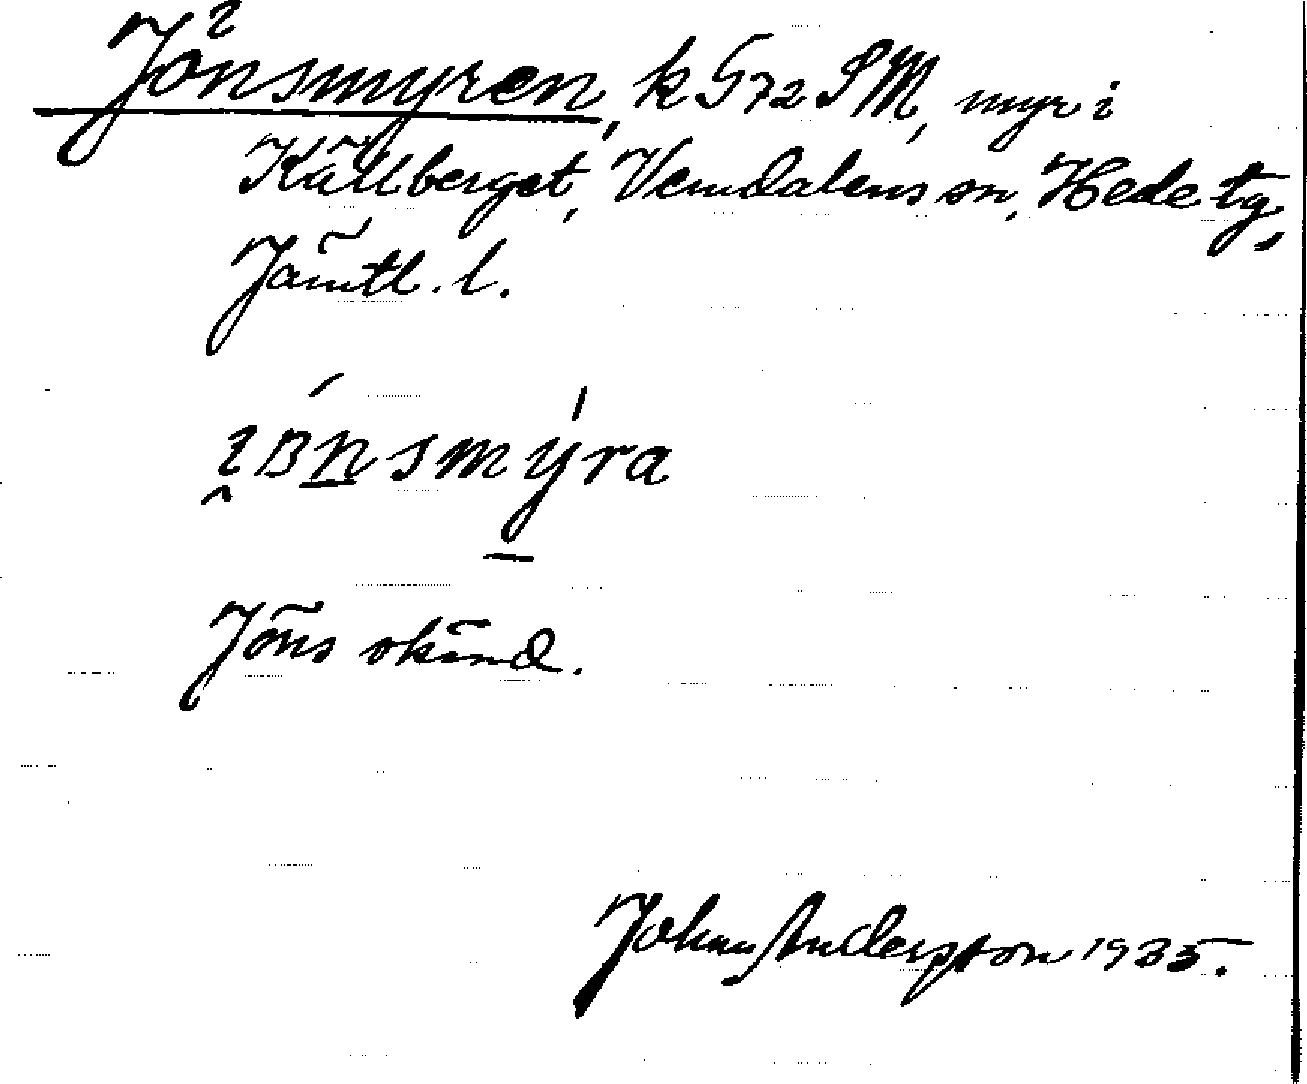 Jönsmyren, k G72 SM, myr i
Källberget, Vemdalens sn, Hede tg,
Jämtl. l.
Jöns okänd.
Johan Andersson 1935.